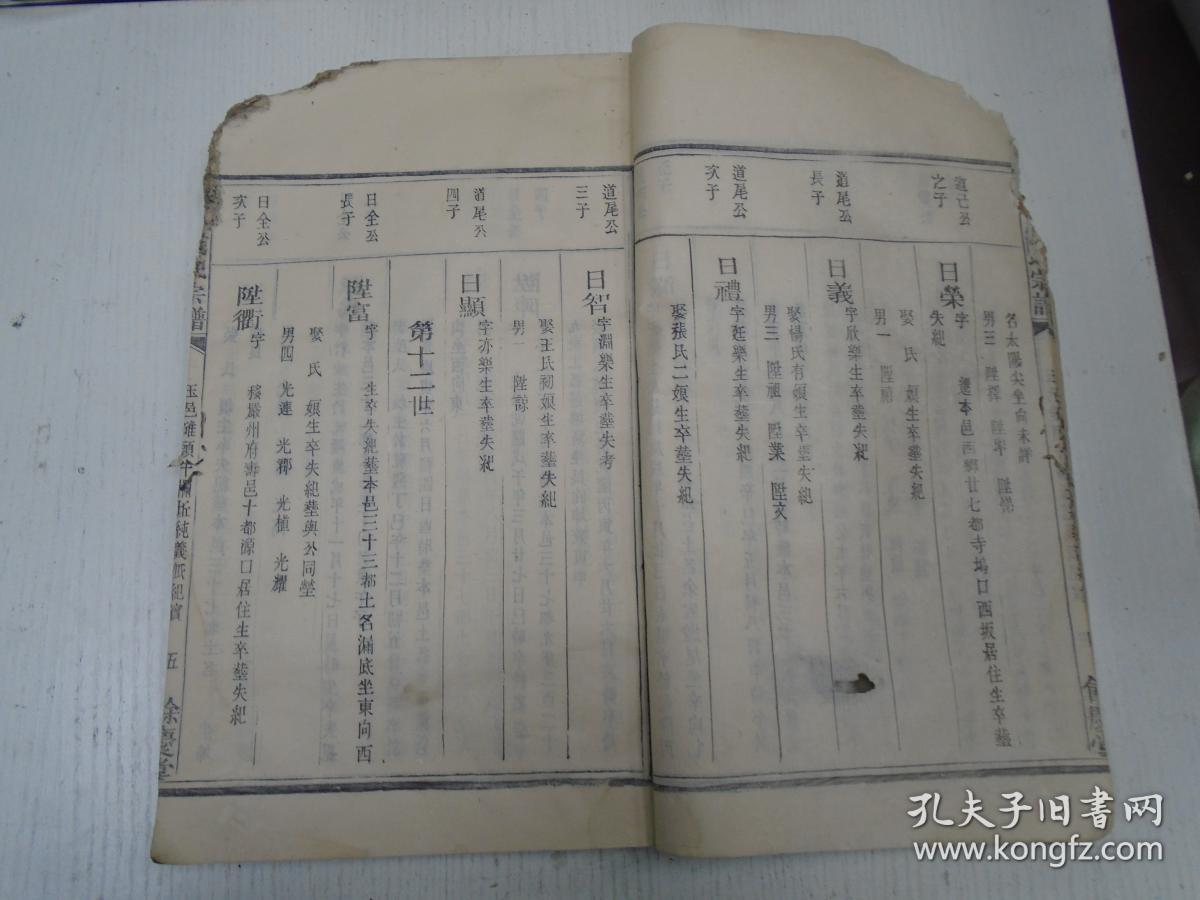 名太陽尖坐向未詳
男三 陞
道
公
之子
日榮 字 遷本邑西鄉廿七都寺塢口西坂居住生卒塟
失紀
娶 氏 娘生卒塟失紀
男一 陞
道尾公
長子
日義 字欣樂生卒塟失紀
娶楊氏有娘生卒塟失紀
男三 陞祖 陞業 陞文
道尾公
次子
日禮 字廷樂生卒塟失紀
娶張氏二娘生卒塟失紀
道尾公
三子
日智 字淵樂生卒塟失考
娶王氏初娘生卒塟失紀
男一 陞諒
道尾公
四子
日顯 字亦樂生卒塟失紀
第十二世
日全公
長子
陞富 字 生卒失紀塟本邑三十三都土名漏底坐東向西
娶 氏 娘生卒失紀塟與公同塋
男四 光連 光郡 光楨 光耀
日全公
次子
陞衢 字 移嚴州府壽邑十都源口居住生卒塟失紀
宗譜
五
餘慶堂
孔夫子旧书网
www.kongfz.com